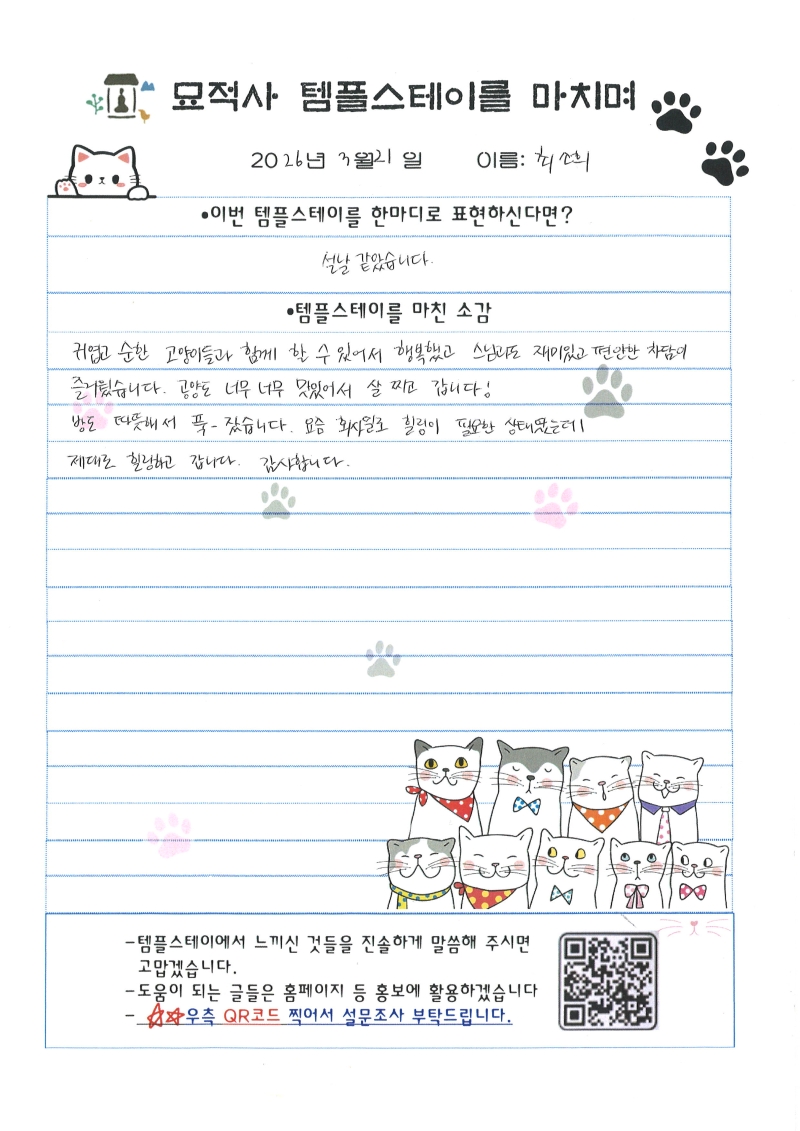 묘적사 템플스테이를 마치며
2026년 3월 21일 이름: 최소희
•이번 템플스테이를 한마디로 표현하신다면?
설날 같았습니다.
•템플스테이를 마친 소감
귀엽고 순한 고양이들과 함께 할 수 있어서 행복했고 스님과도 재미있고 편안한 차담이
즐거웠습니다. 공양도 너무 너무 맛있어서 살 찌고 갑니다!
방도 따뜻해서 푹- 잤습니다. 요즘 회사일로 힐링이 필요한 상태였는데
제대로 힐링하고 갑니다. 감사합니다.
-템플스테이에서 느끼신 것들을 진솔하게 말씀해 주시면
고맙겠습니다.
-도움이 되는 글들은 홈페이지 등 홍보에 활용하겠습니다
- ☆☆우측 QR코드 찍어서 설문조사 부탁드립니다.